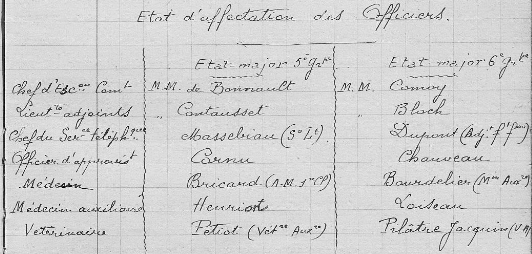 Etat d'affectation des Officiers.
Etat-major 5e gpe Etat major 6e gpe
Chef d'Escon Comt M.M. de Bonnault M.M. Comoy
Lieutts adjoints " Contausset " Bloch
Chef du Serce téléphque Massebiau (S/ Lt) Dupont (Adjt ft fons)
Officier d'approvist Cornu Chauveau
Médecin Bricard (A.M. 1e Cl) Bourdelier (Men Auxre)
Médecin auxiliaire Henriot Loiseau
Vétérinaire Petiot (Vétre Auxre) Pilâtre Jacquin (V A)